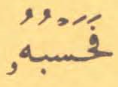 فَحَسْبُهُۥ